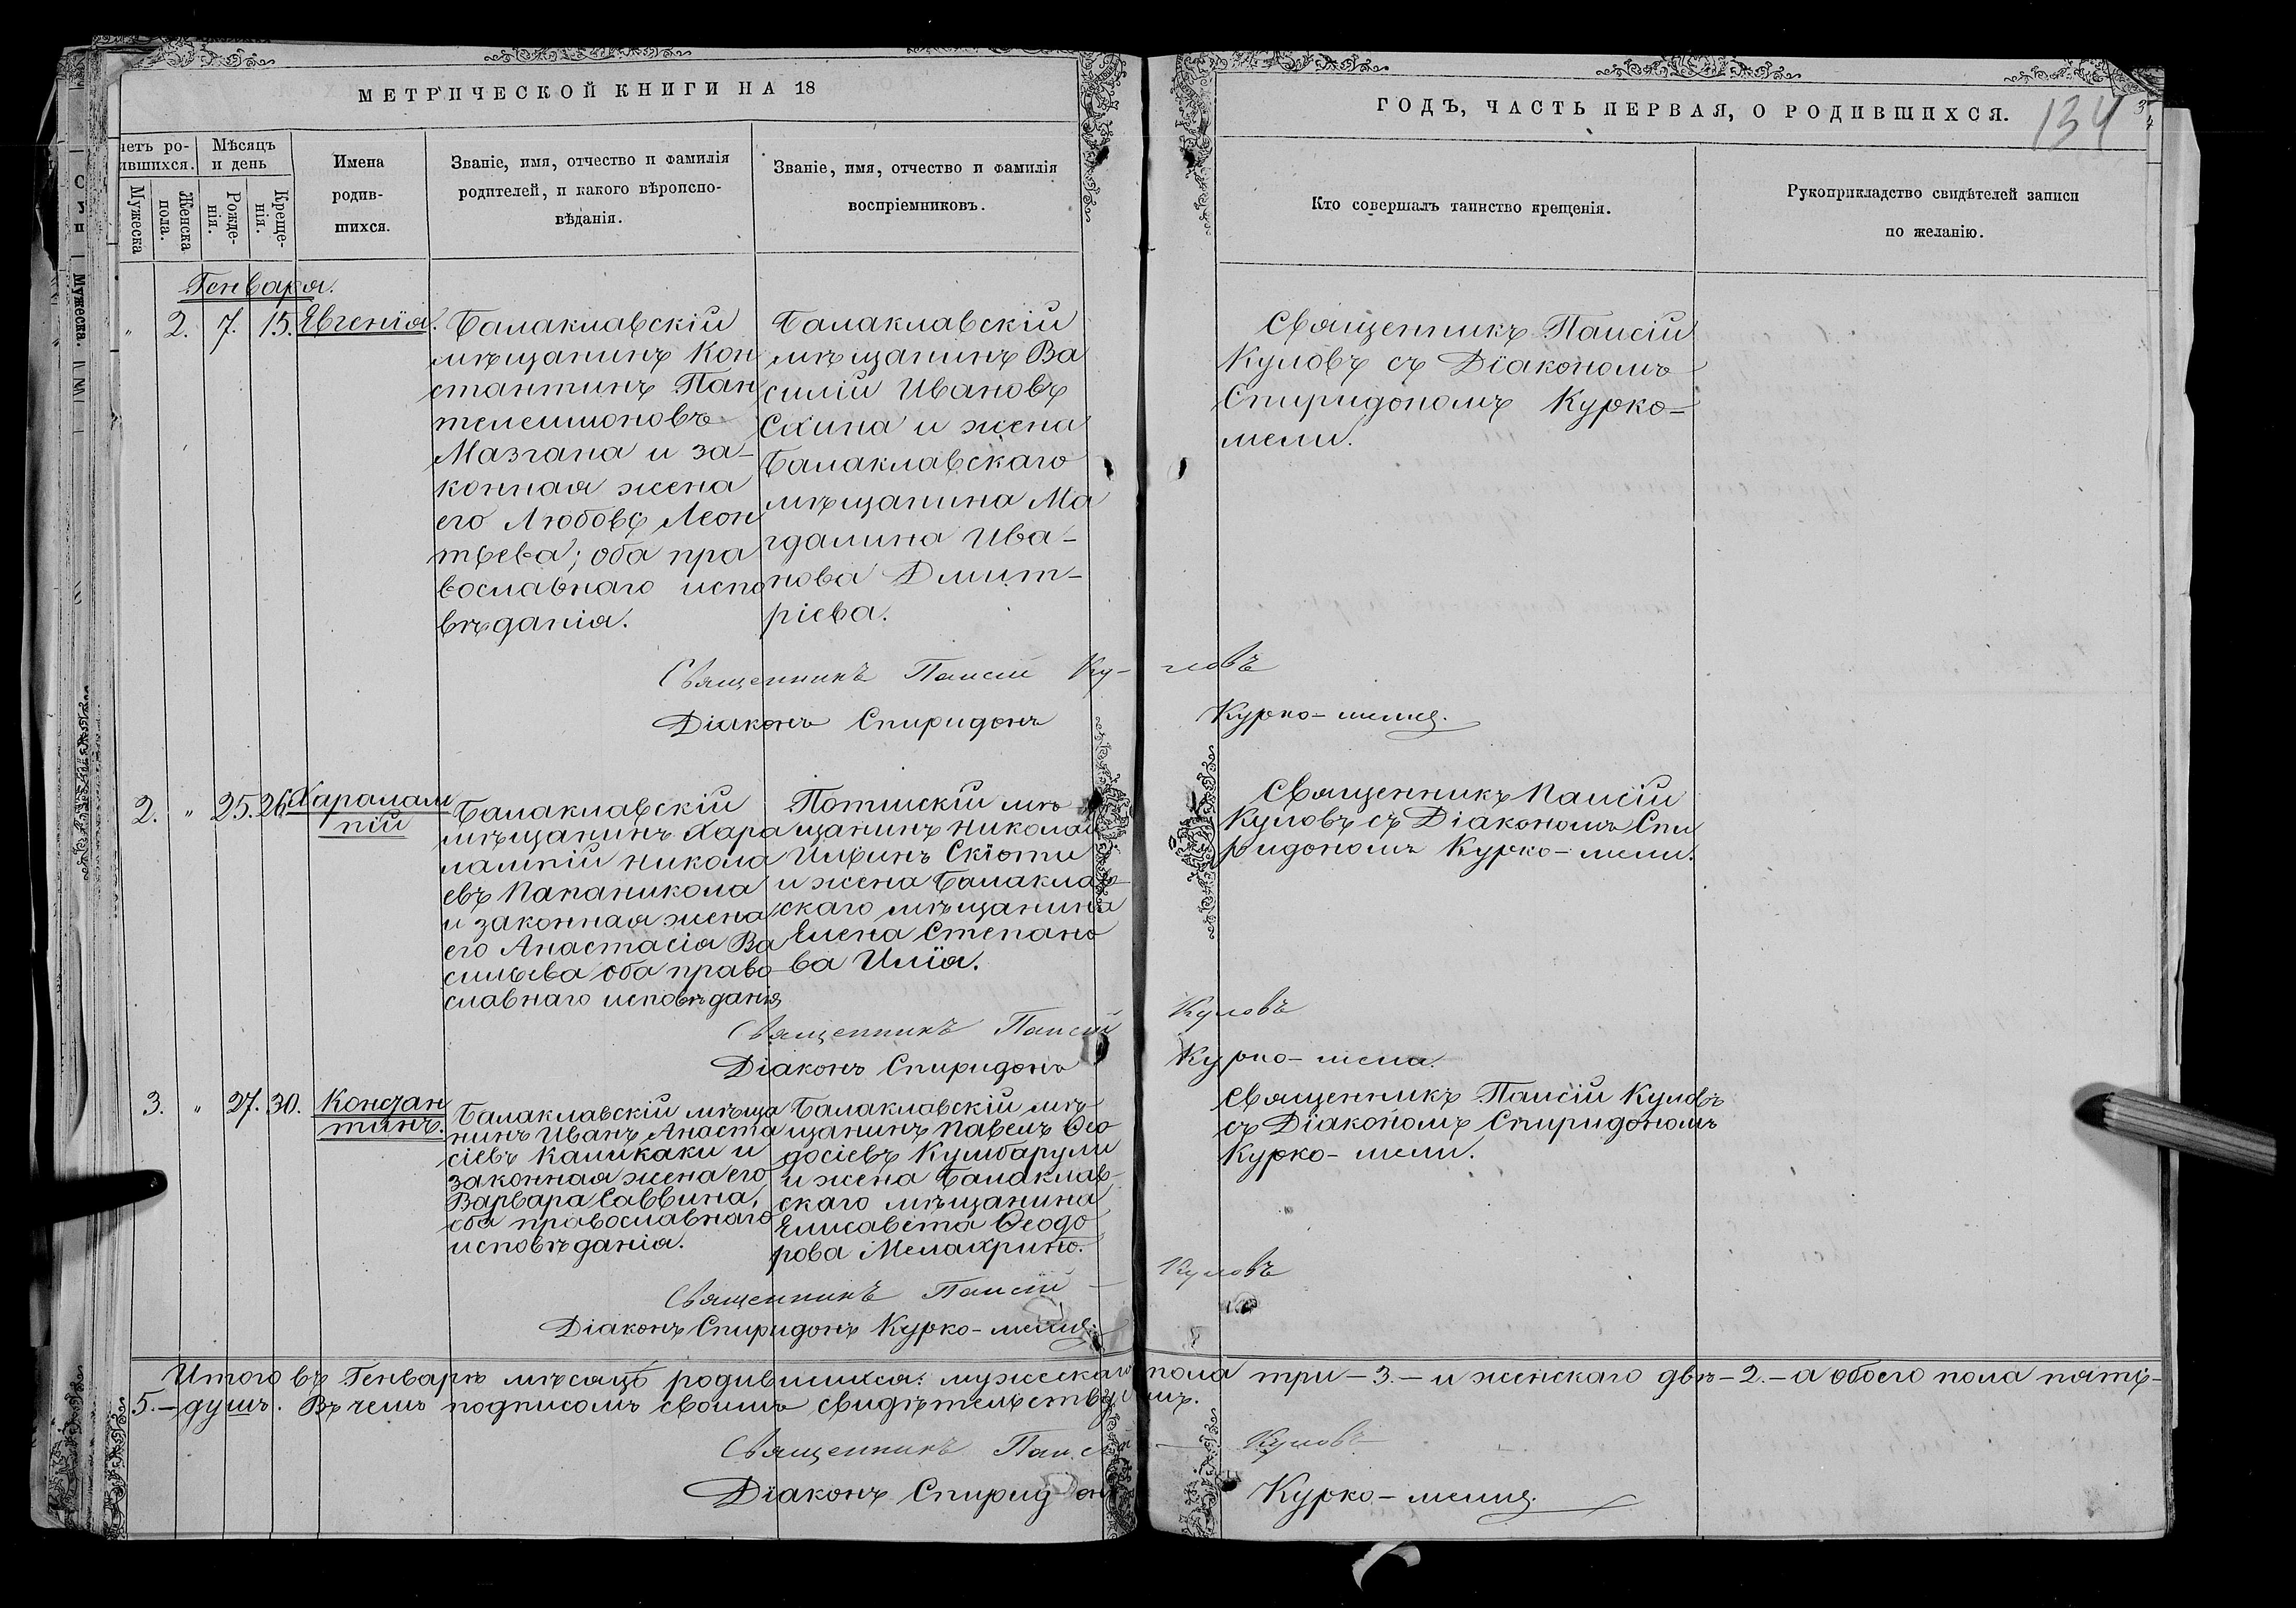 МЕТРИЧЕСКОЙ КНИГИ НА 18
ГОДЪ, ЧАСТЬ ПЕРВАЯ, О РОДИВШИХСЯ.
134
четъ ро-
ившихся.
Мужеска
Женска
пола.
Мѣсяцъ
и день
Рожде-
нія.
Креще-
нія.
Имена
родив-
шихся.
Званіе, имя, отчество и фамилія
родителей, и какого вѣроиспо-
вѣданія.
Званіе, имя, отчество и фамилія
воспріемниковъ.
Кто совершалъ таинство крещенія.
Рукоприкладство свидѣтелей записи
по желанію.
Мужеска.
Генваря.
" 2. 7. 15. Евгенія.
Балаклавскій
мѣщанинъ Кон
стантинъ Пан
телеимоновъ
Мазгана и за-
конная жена
его Любовь Леон
тьева; оба пра
вославнаго испо
вѣданія.
Балаклавскій
мѣщанинъ Ва
силій Ивановъ
Схина и жена
Балаклавскаго
мѣщанина Ма
гдалина Ива-
нова Дмит-
ріева.
Священникъ Паисій
Куловъ съ Діакономъ
Спиридономъ Курко-
мели.
Священникъ Паисій Ку- ловъ
Діаконъ Спиридонъ Курко-мели.
2. " 25. 26. Харалам
пій
Балаклавскій
мѣщанинъ Хара
лампій Никола
евъ Папаникола
и законная жена
его Анастасія Ва
сильева оба право
славнаго исповѣданія
Потийскій мѣ
щанинъ Николай
Ильинъ Скіоти
и жена Балаклав
скаго мѣщанина
Елена Степано
ва Илія.
Священникъ Паисій
Куловъ съ Діакономъ Спи
ридономъ Курко-мели.
Священникъ Паисій Куловъ
Діаконъ Спиридонъ Курко-мели.
3. " 27. 30. Констан
тинъ.
Балаклавскій мѣща
нинъ Иванъ Анаста
сіевъ Каликаки и
законная жена его
Варвара Саввина,
оба православнаго
исповѣданія.
Балаклавскій мѣ-
щанинъ Павелъ Ѳео
досіевъ Кумбарули
и жена Балаклав-
скаго мѣщанина
Елисавета Ѳеодо
рова Мелахрино.
Священникъ Паисій Куловъ
съ Діакономъ Спиридономъ
Курко-мели.
Священникъ Паисій - Куловъ
Діаконъ Спиридонъ Курко-мели.
Итого въ Генварѣ мѣсяцѣ родившихся: мужескаго пола три-3.- и женскаго двѣ-2.- а обоего пола пять-
5.- душъ. Въ чемъ подписомъ своимъ свидѣтельствуемъ.
Священникъ Паисій - Куловъ
Діаконъ Спиридонъ Курко-мели.